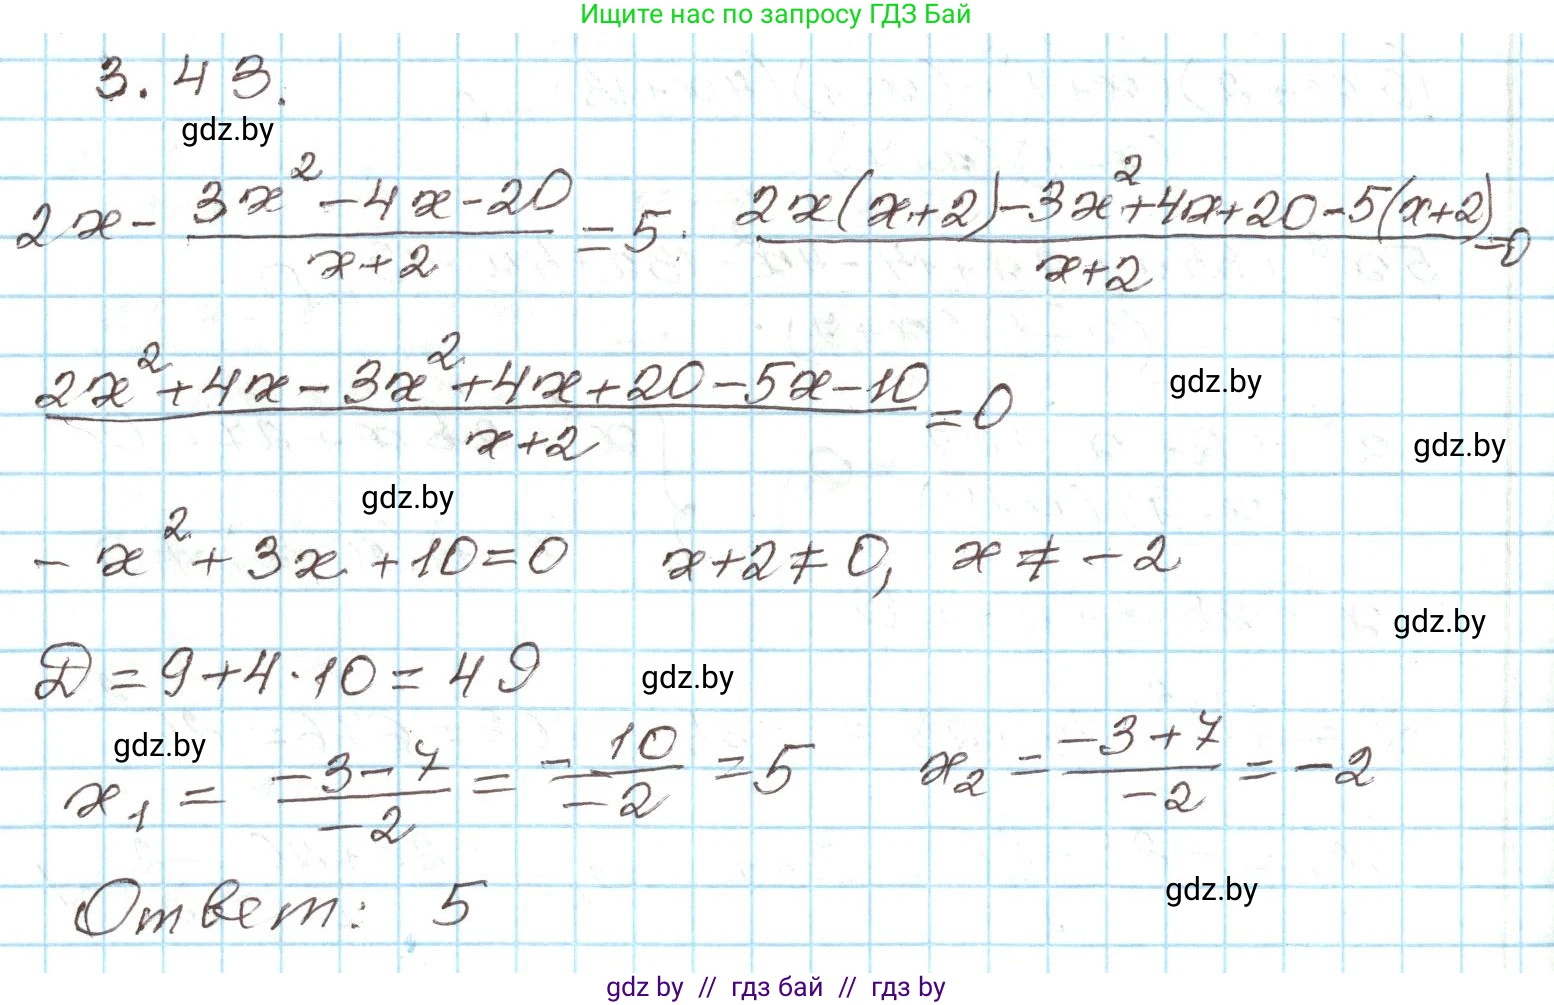 Ищите нас по запросу ГДЗ Бай
3.43.
gdz.by
2x - (3x² - 4x - 20)/(x+2) = 5. (2x(x+2) - 3x² + 4x + 20 - 5(x+2))/(x+2) = 0
(2x² + 4x - 3x² + 4x + 20 - 5x - 10)/(x+2) = 0
gdz.by
gdz.by
gdz.by
-x² + 3x + 10 = 0 x+2 ≠ 0, x ≠ -2
gdz.by
D = 9 + 4·10 = 49
gdz.by
gdz.by
x₁ = (-3-7)/(-2) = -10/-2 = 5 x₂ = (-3+7)/(-2) = -2
gdz.by
Ответ: 5
gdz by // гдз бай // гдз by